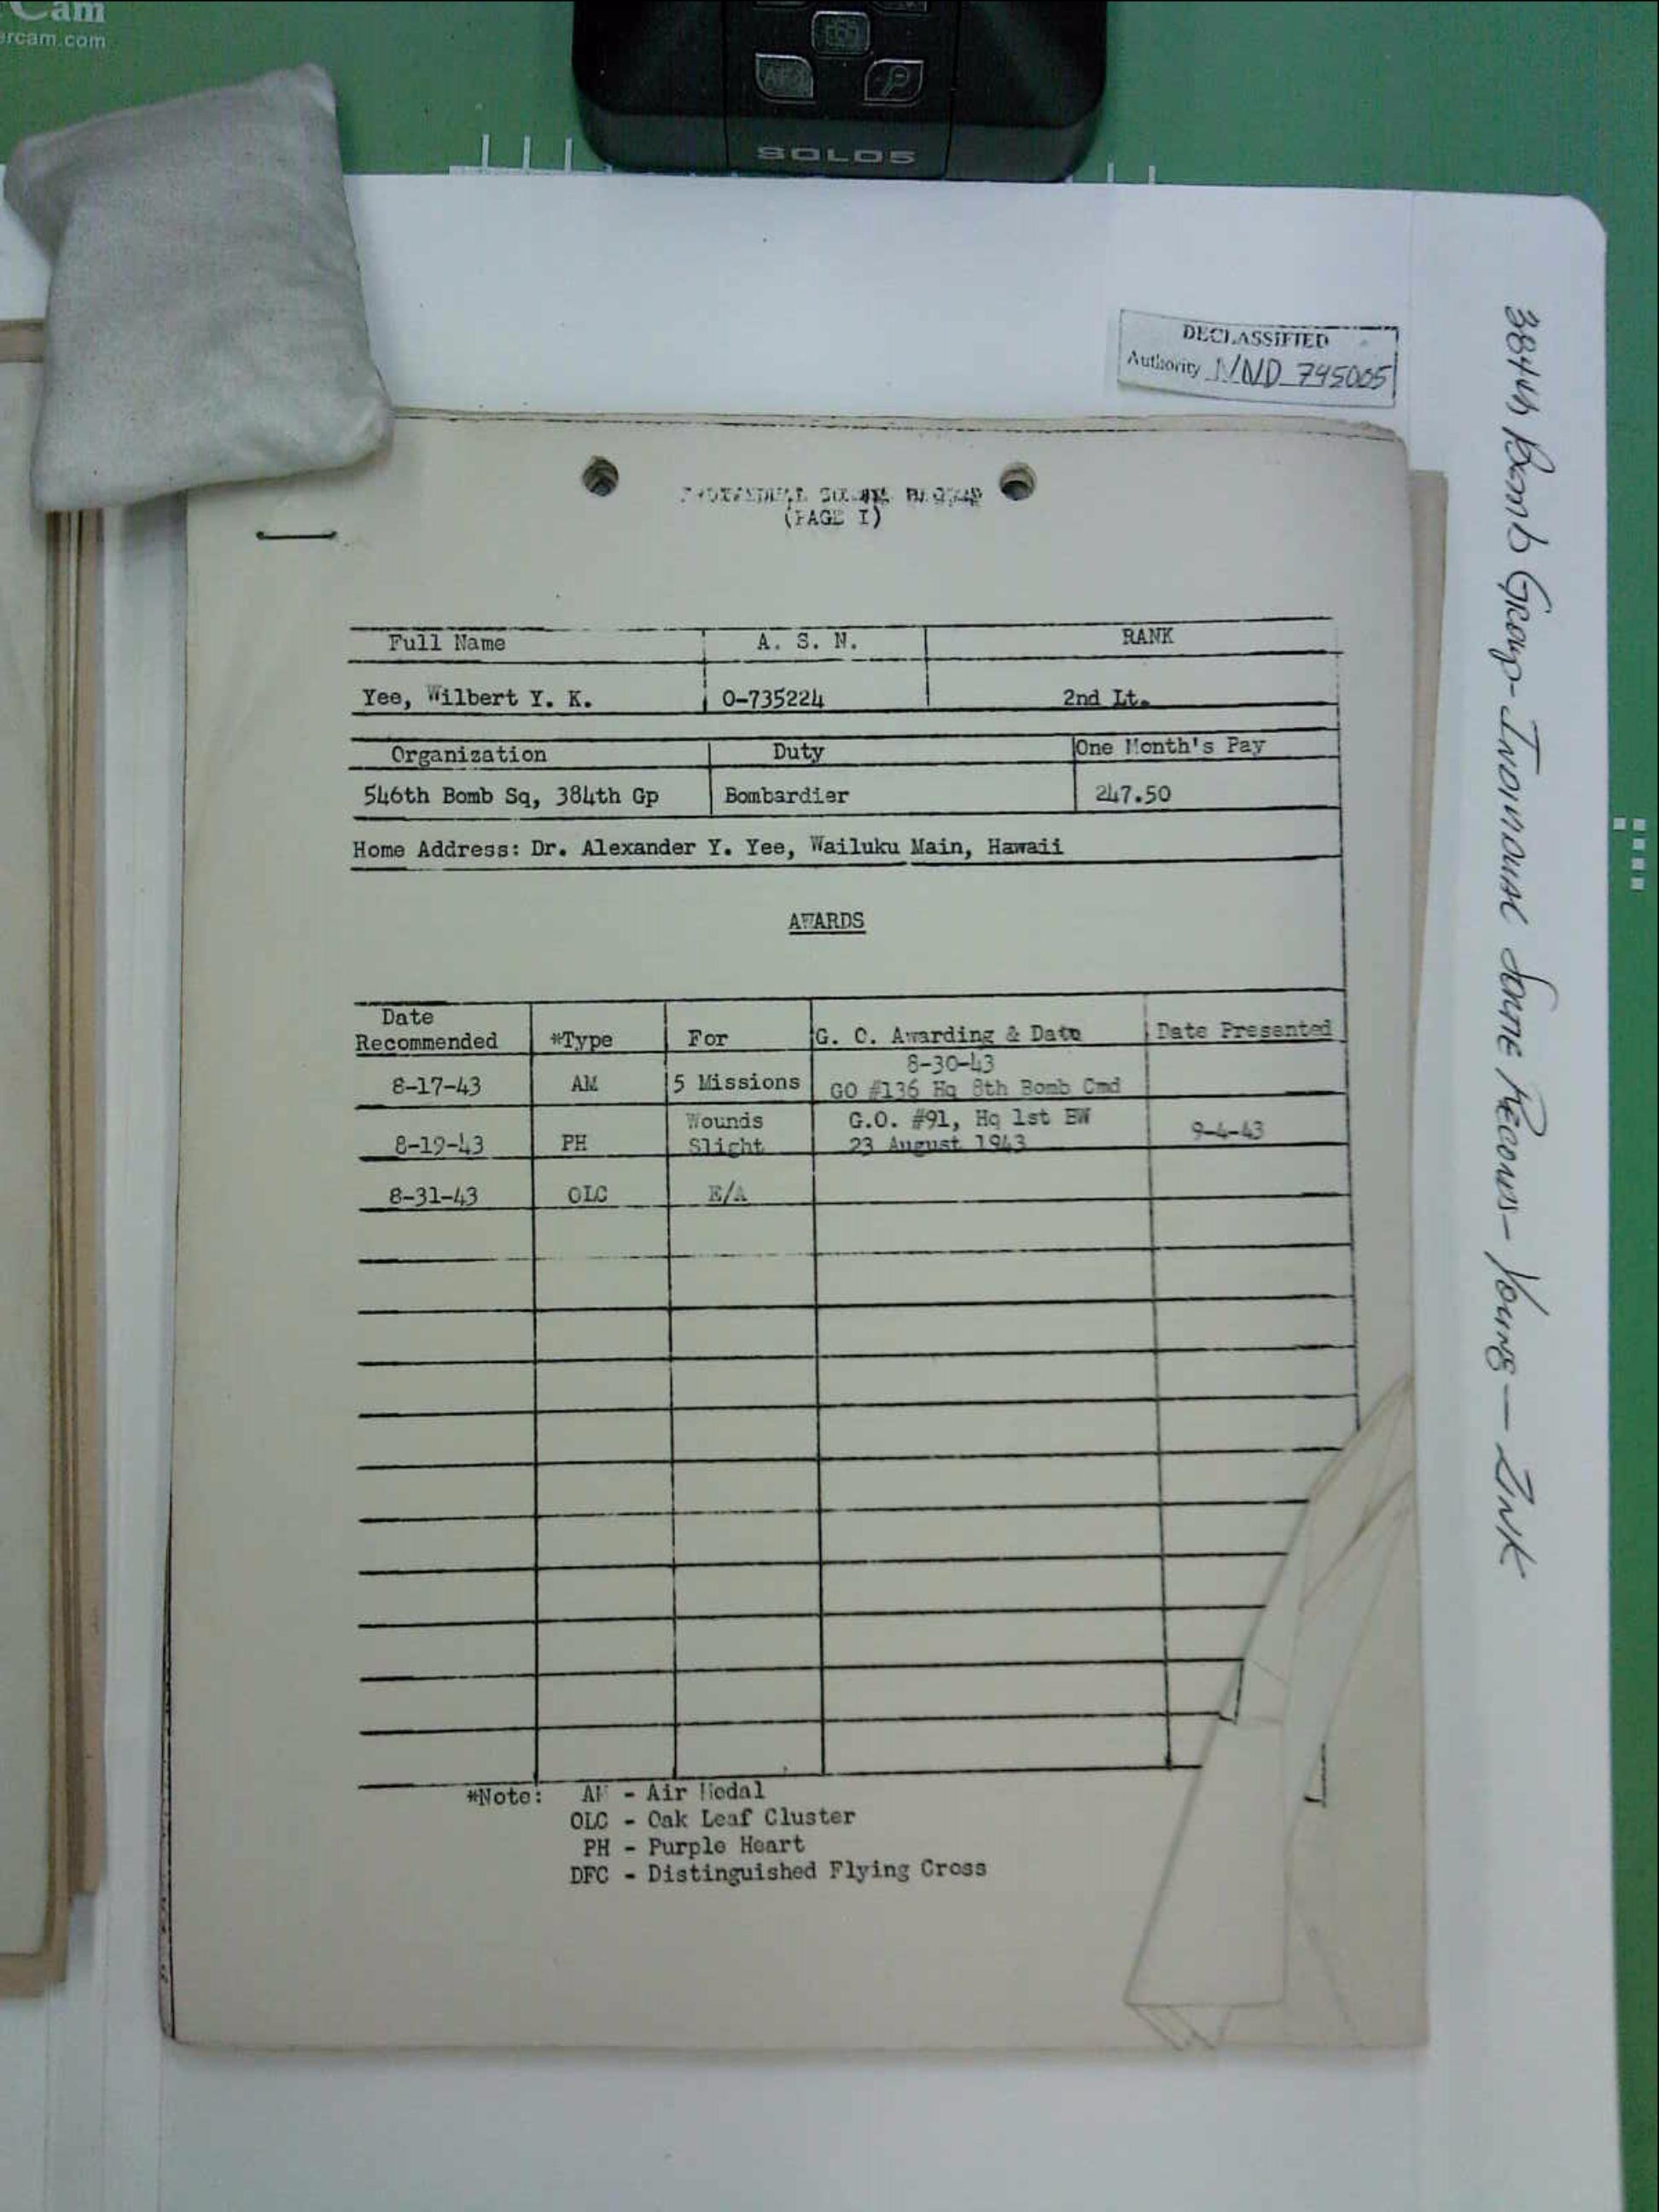 Cam
ercam.com
SOLO5
DECLASSIFIED
Authority NND 745005
INDIVIDUAL SORTIE RECORD
(PAGE I)
Full Name A. S. N. RANK
Yee, Wilbert Y. K. 0-735224 2nd Lt.
Organization Duty One Month's Pay
546th Bomb Sq, 384th Gp Bombardier 247.50
Home Address: Dr. Alexander Y. Yee, Wailuku Main, Hawaii
AWARDS
Date
Recommended *Type For G. O. Awarding & Date Date Presented
8-30-43
8-17-43 AM 5 Missions GO #136 Hq 8th Bomb Cmd
Wounds G.O. #91, Hq 1st BW
8-19-43 PH Slight 23 August 1943 9-4-43
8-31-43 OLC E/A
*Note: AM - Air Medal
OLC - Oak Leaf Cluster
PH - Purple Heart
DFC - Distinguished Flying Cross
384th Bomb Group - Individual Sortie Records - Young — Zink